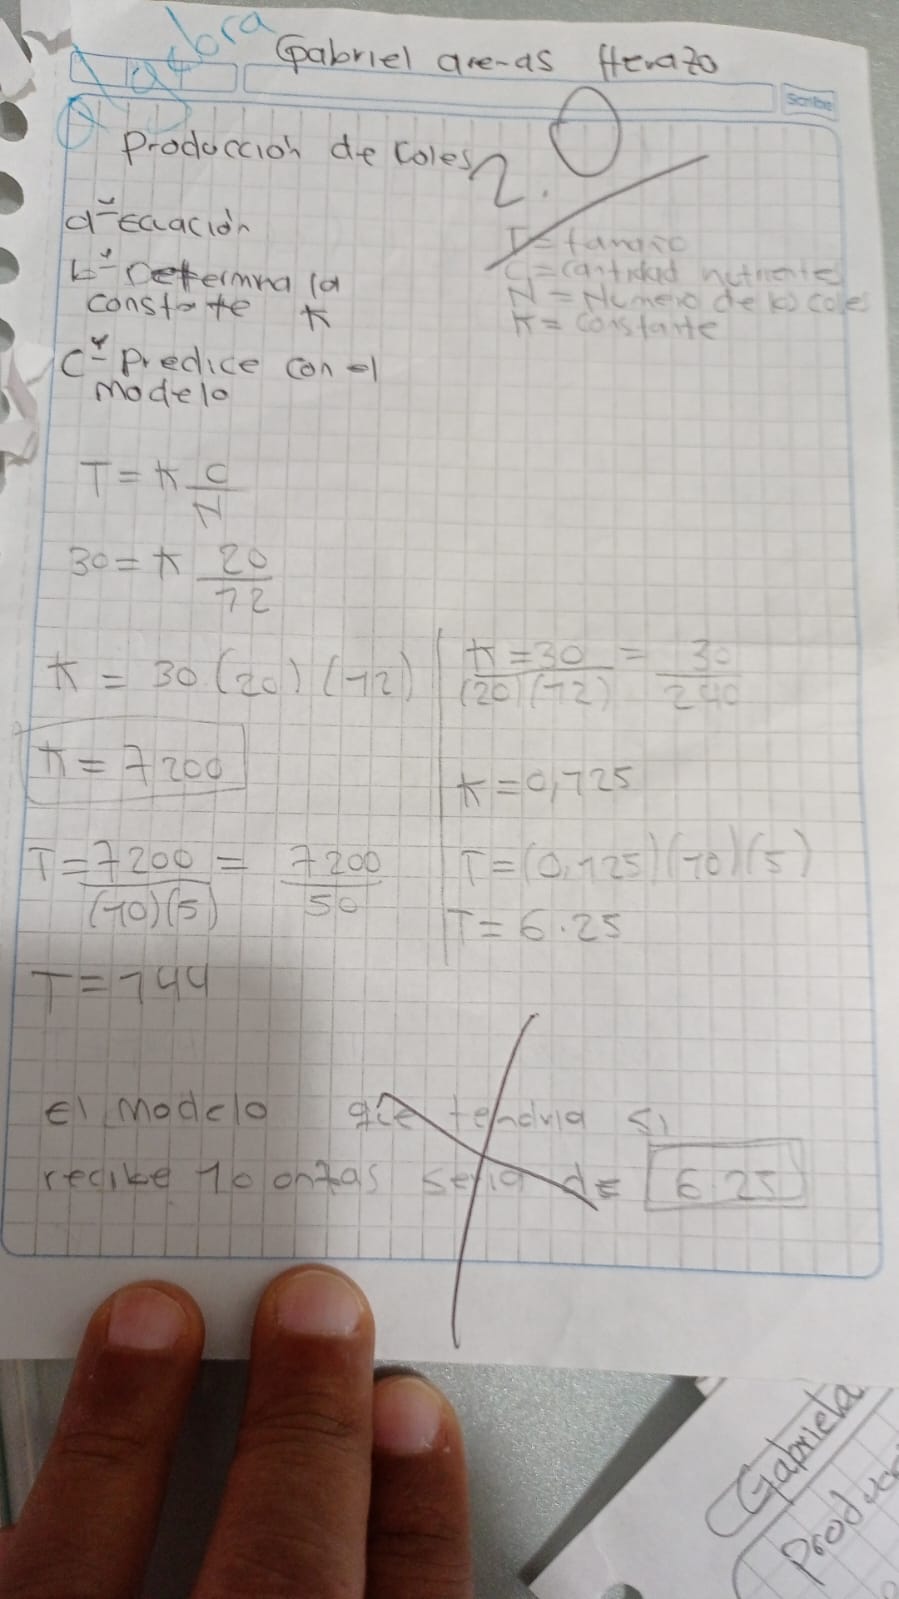 Algebra
Gabriel arenas Herazo
Scribe
Producción de Coles
2.0
a- Ecuación
b- Determina la
constante K
c- Predice con el
modelo
T = tamaño
C = Cantidad nutrientes
N = Numero de los coles
K = constante
T = K C/N
30 = K 20/12
K = 30 (20) (12)
K = 7200
T = 7200/(10)(5) = 7200/50
T = 144
K = 30/(20)(12) = 30/240
K = 0,125
T = (0,125)(10)(5)
T = 6.25
El modelo que tendria si
recibe 10 onzas seria de 6.25
Gabriela
Produc